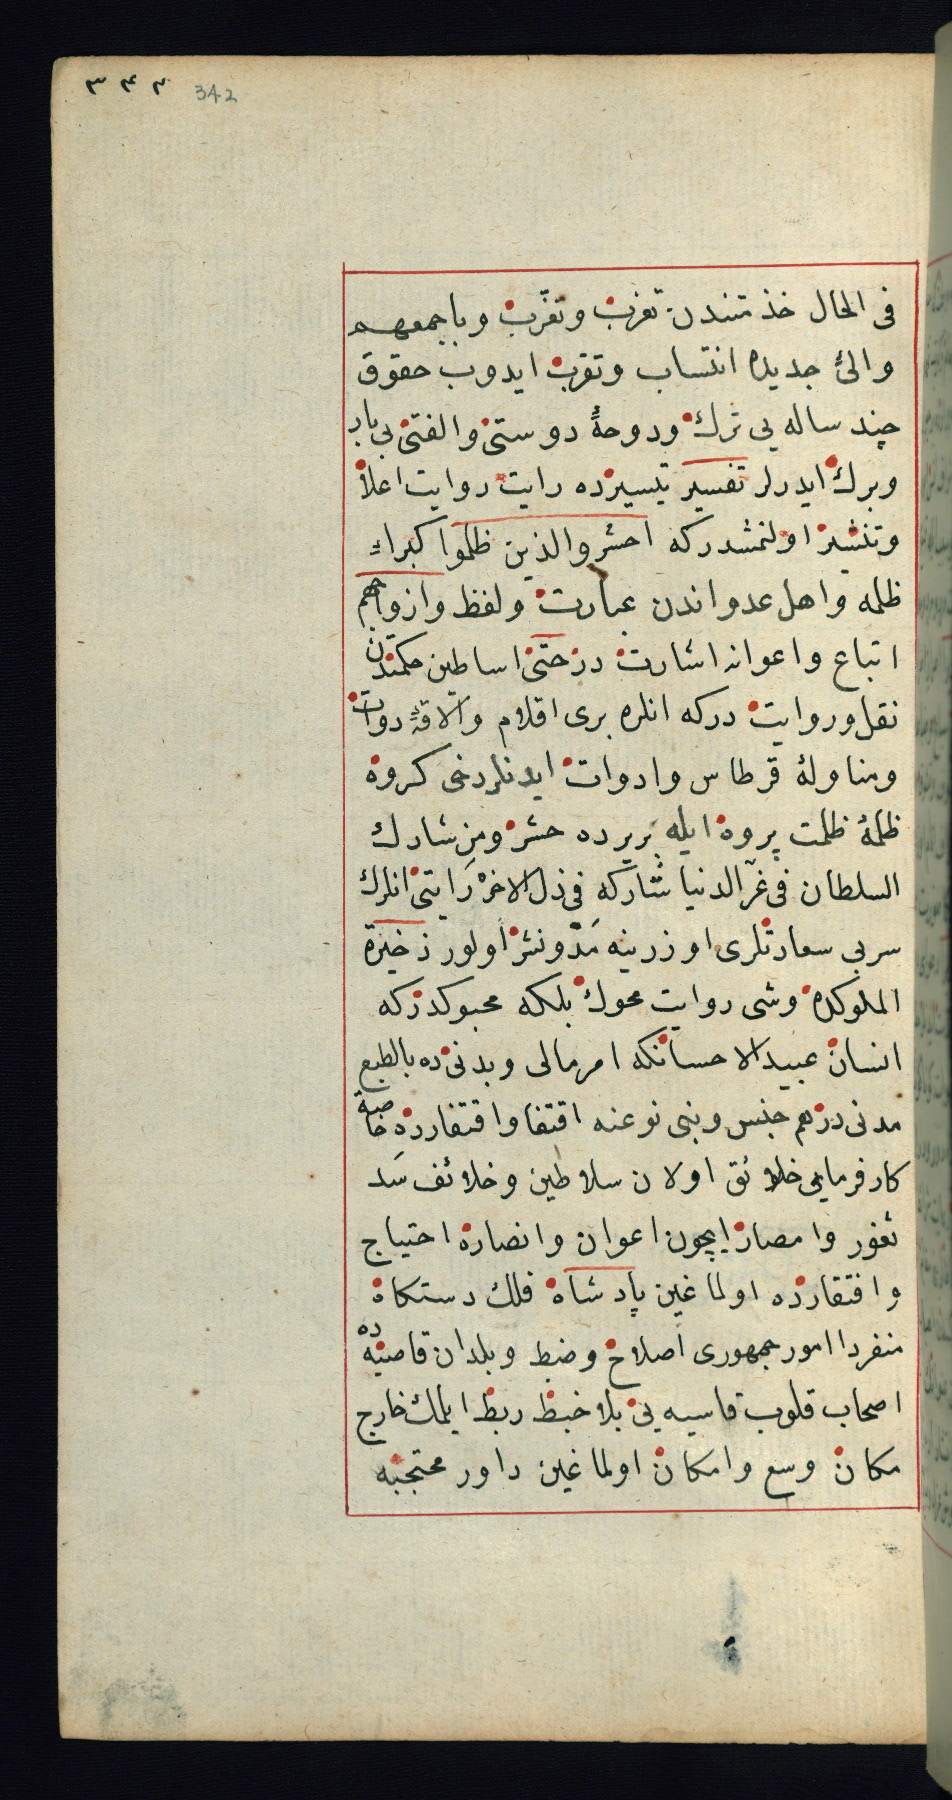 ۳۴۳ 342
فی الحال خذمتندن تغرب وتقرب وباجمعهم
والئ جدیده انتساب وتقرب ایدوب حقوق
چند ساله یی ترك ودوحهٔ دوستی والفتی بی بار
وبرك ایدرلر تفسیر تیسیرده رایت روایت اعلا
وتنشیر اولنمشدركه احشروالذین ظلموا كبراء
ظلمه واهل عدواندن عبارت ولفظ وازواجهم
اتباع واعوانه اشارتدر حتی اساطین حكمتدن
نقل وروایت دركه انلره بری اقلام والاقهٔ دوات
ومناولهٔ قرطاس وادوات ایدنلردخی كروه
ظلمهٔ ظلمت پروه ایله بریرده حشر ومن شارك
السلطان فی غر الدنیا شاركه فی ذل الاخره رایتی انلرك
سربی سعادتلری اوزرینه مد ونشر اولور ذخیرة
الملوكده وشی روایت محوك بلكه محبوكدركه
انسان عبید الاحسانكه امرمالی وبدنی ده بالطبع
مدنی درهم جنس وبنی نوعنه اقتفا وافتقارده خاصة
كارفرمایی خلائق اولان سلاطین وخلائف سد
ثغور وامصار ایچون اعوان وانصاره احتیاج
وافتقارده اولماغین پادشاه فلك دستكاه
منفردا امور جمهوری اصلاح وضبط وبلدان قاصیه ده
اصحاب قلوب قاسیه یی بلا خبط ربط ایلمك خارج
مكان وسع وامكان اولماغین داور محتجبه